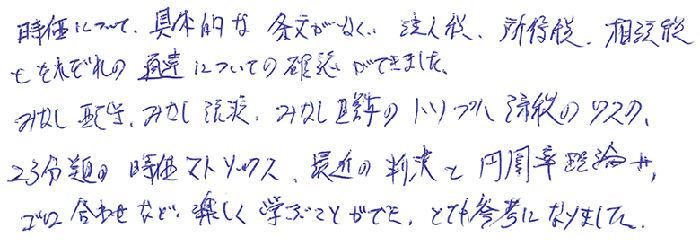 時価について、具体的な条文がなく、法人税、所得税、相続税
とそれぞれの通達についての確認ができました。
みなし配当、みなし譲渡、みなし贈与のトリプル課税のリスク、
23分類の時価マトリックス、最近の判決と円周率理論や、
ゴロ合わせなど、楽しく学ぶことができ、とても参考になりました。